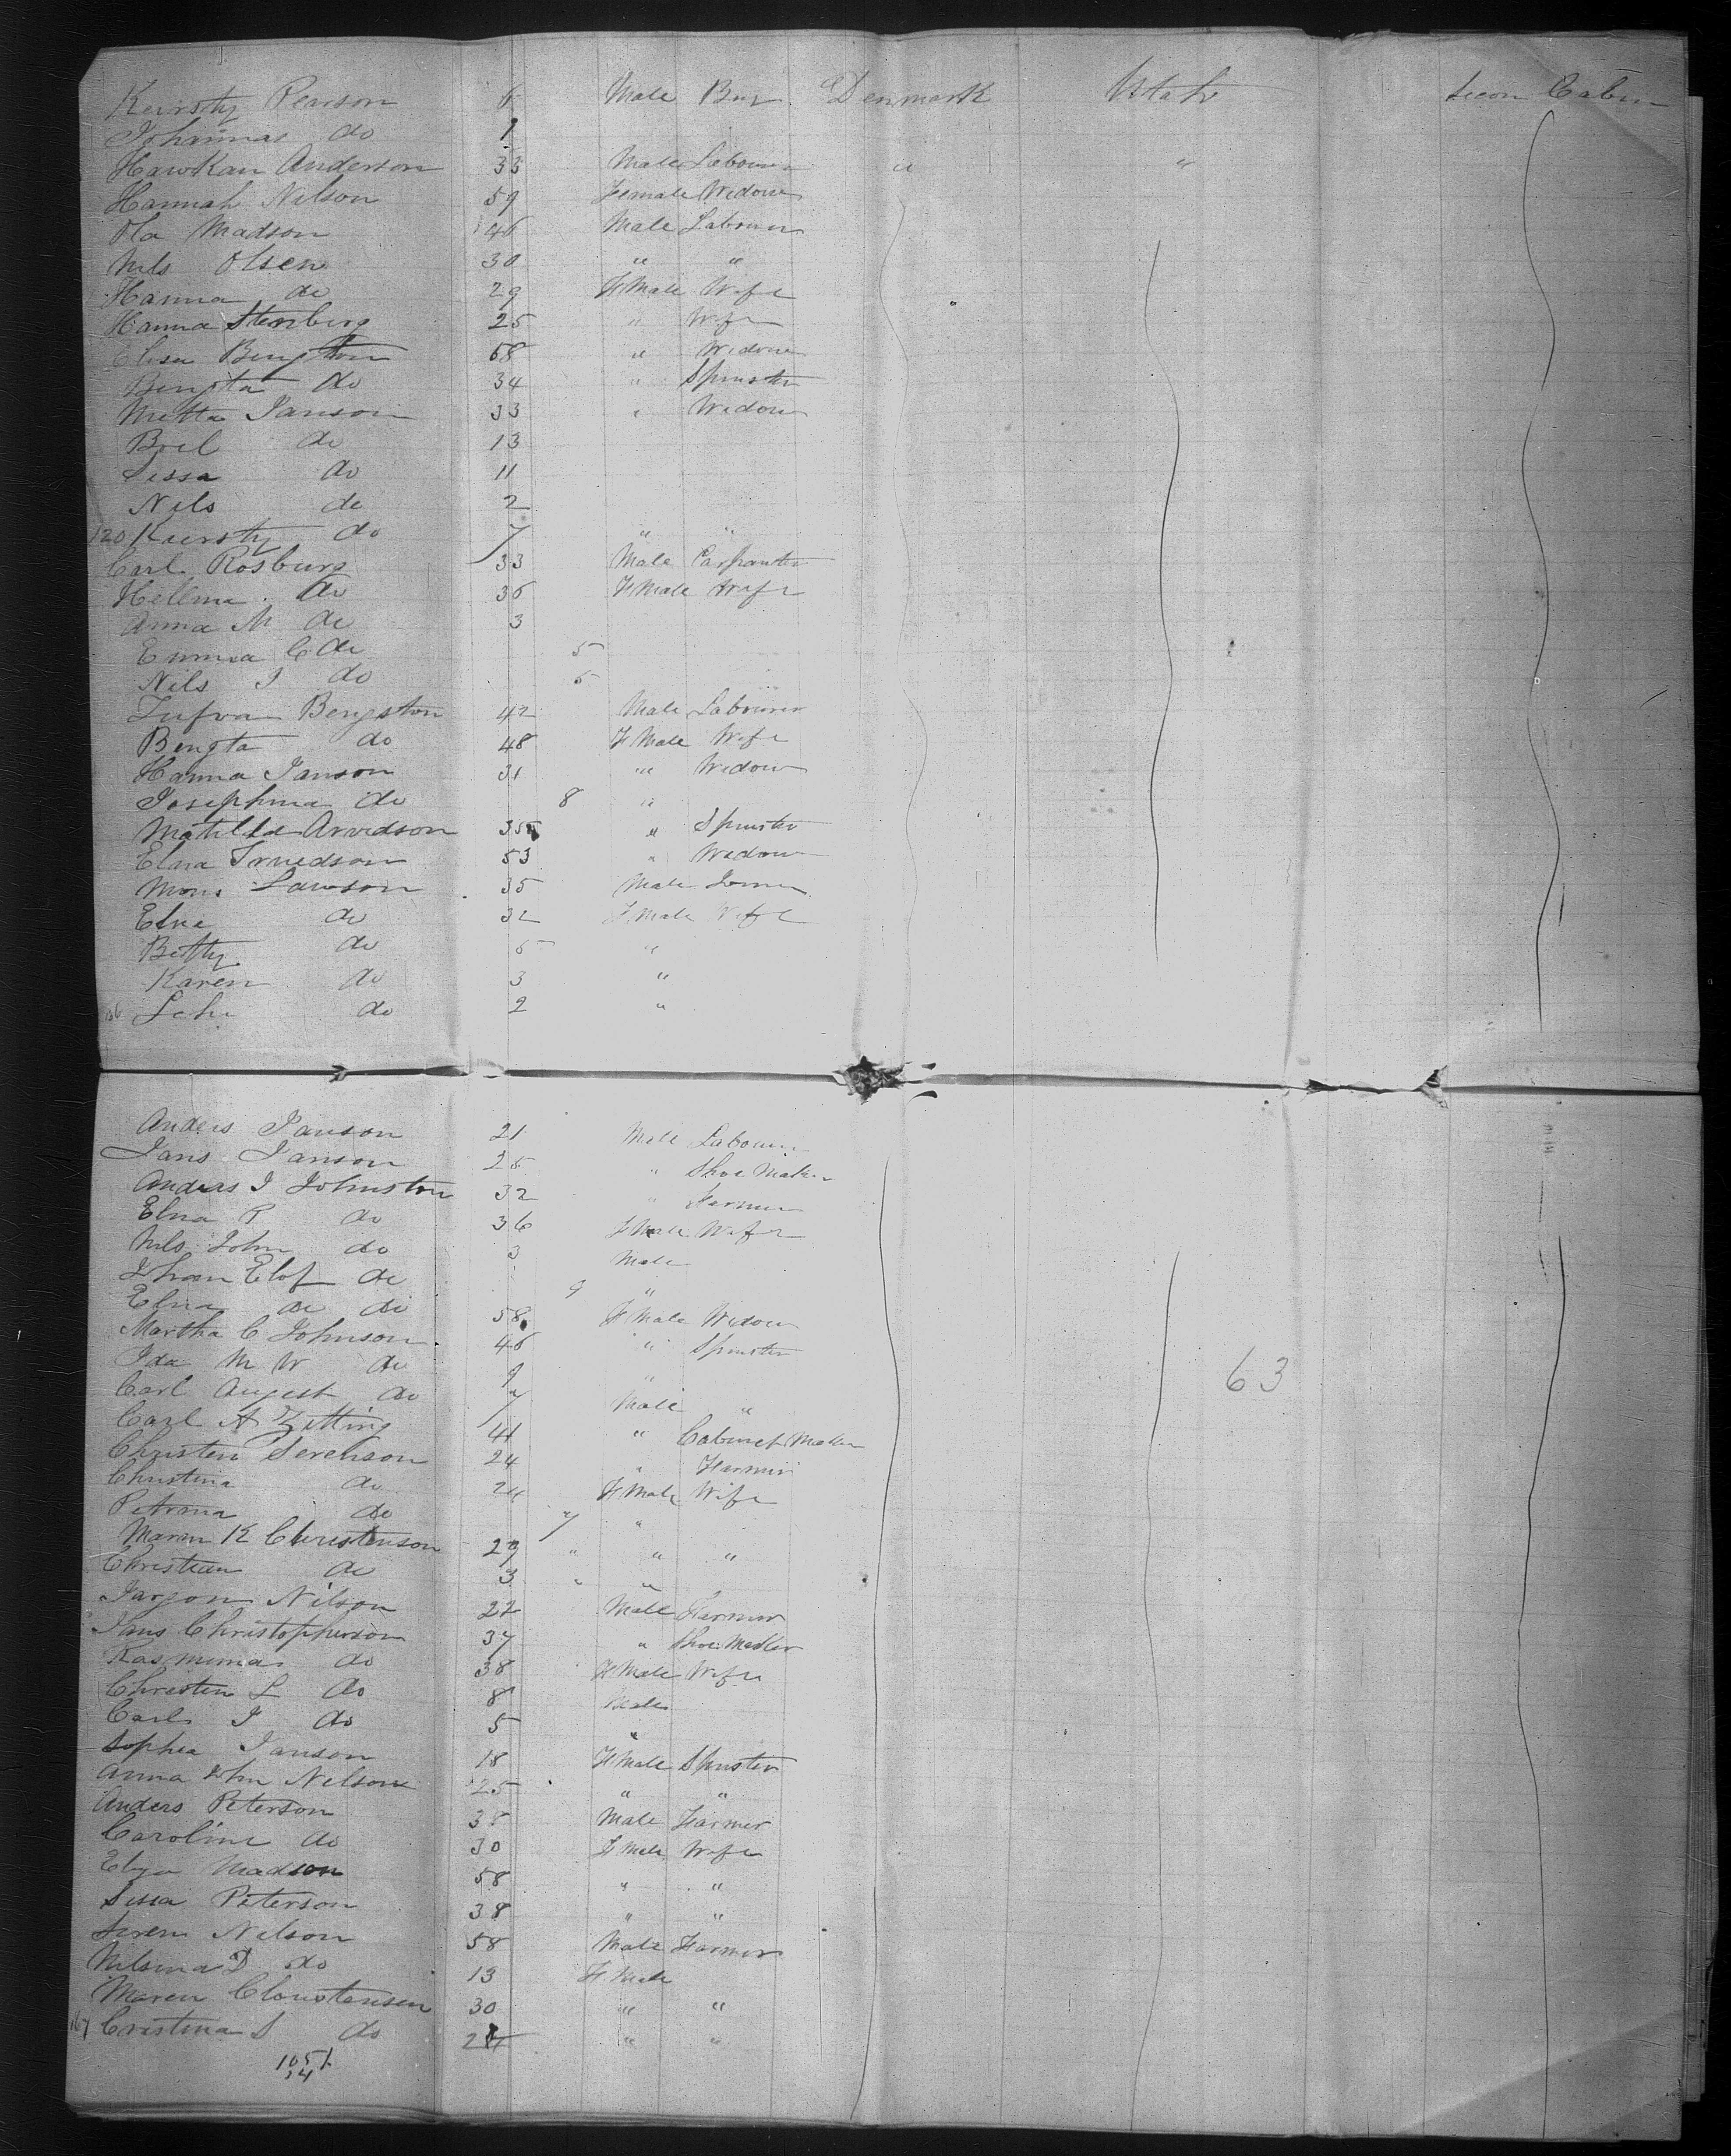 Kiersty Pearson 6 Male Boy Denmark Utah Secon Cabin
Johannas do 1
Hawkan Anderson 33 Male Labourer " "
Hannah Nilson 59 Female Widow
Ola Madson 46 Male Labourer
Nils Olsen 30 " "
Hanna do 29 FMale Wife
Hanna Stenberg 25 " Wife
Elisa Bengston 58 " Widow
Bengta do 34 " Spinster
Metta Janson 33 " Widow
Boel do 13
Sissa do 11
Nils do 2
120 Kiersty do 7 " "
Carl Rosburg 33 Male Carpanter
Hellma do 36 FMale Wife
Anna M do 3
Emma C do 5
Nils J do 5
Tufva Bengston 42 Male Labourer
Bengta do 48 FMale Wife
Hanna Janson 31 " Widow
Josephina do 8 "
Matilda Arvidson 35 " Spinster
Elna 53 " Widow
Mons Lawson 35 Male
Elna do 32 FMale Wife
Betty do 5 "
Karen do 3 "
136 Lehi do 2 "
Anders Janson 21 Male Labourer
Jans Janson 25 " Shoe Maker
Anders J Johnston 32 " Farmer
Elna P do 36 FMale Wife
Nils John do 3 Male
Johan Elof do 9 "
Elna do do 58 FMale Widow
Martha C Johnson 46 " Spinster
Ida M W do 9 "
Carl August do 7 Male "
Carl A Zetting 41 " Cabinet Maker
63
Christen Serenson 24 " Farmer
Christina do 24 FMale Wife
Petrina do 7 "
Maren K Christenson 27 " " "
Christian do 3 " "
Jargon Nilson 22 Male Farmer
Jans Christopherson 37 " Shoe Maker
Rasmina do 38 FMale Wife
Christen L do 8 Male
Carl J do 5 "
Sophia Janson 18 FMale Spinster
Anna Nelson 25 " "
Anders Peterson 38 Male Farmer
Caroline do 30 FMale Wife
Madson 58 " "
Sissa Peterson 38 " "
Seren Nelson 58 Male Farmer
Nilsina D do 13 FMale
Maren Christensen 30 " "
167 Cristina S do " "
1051
34